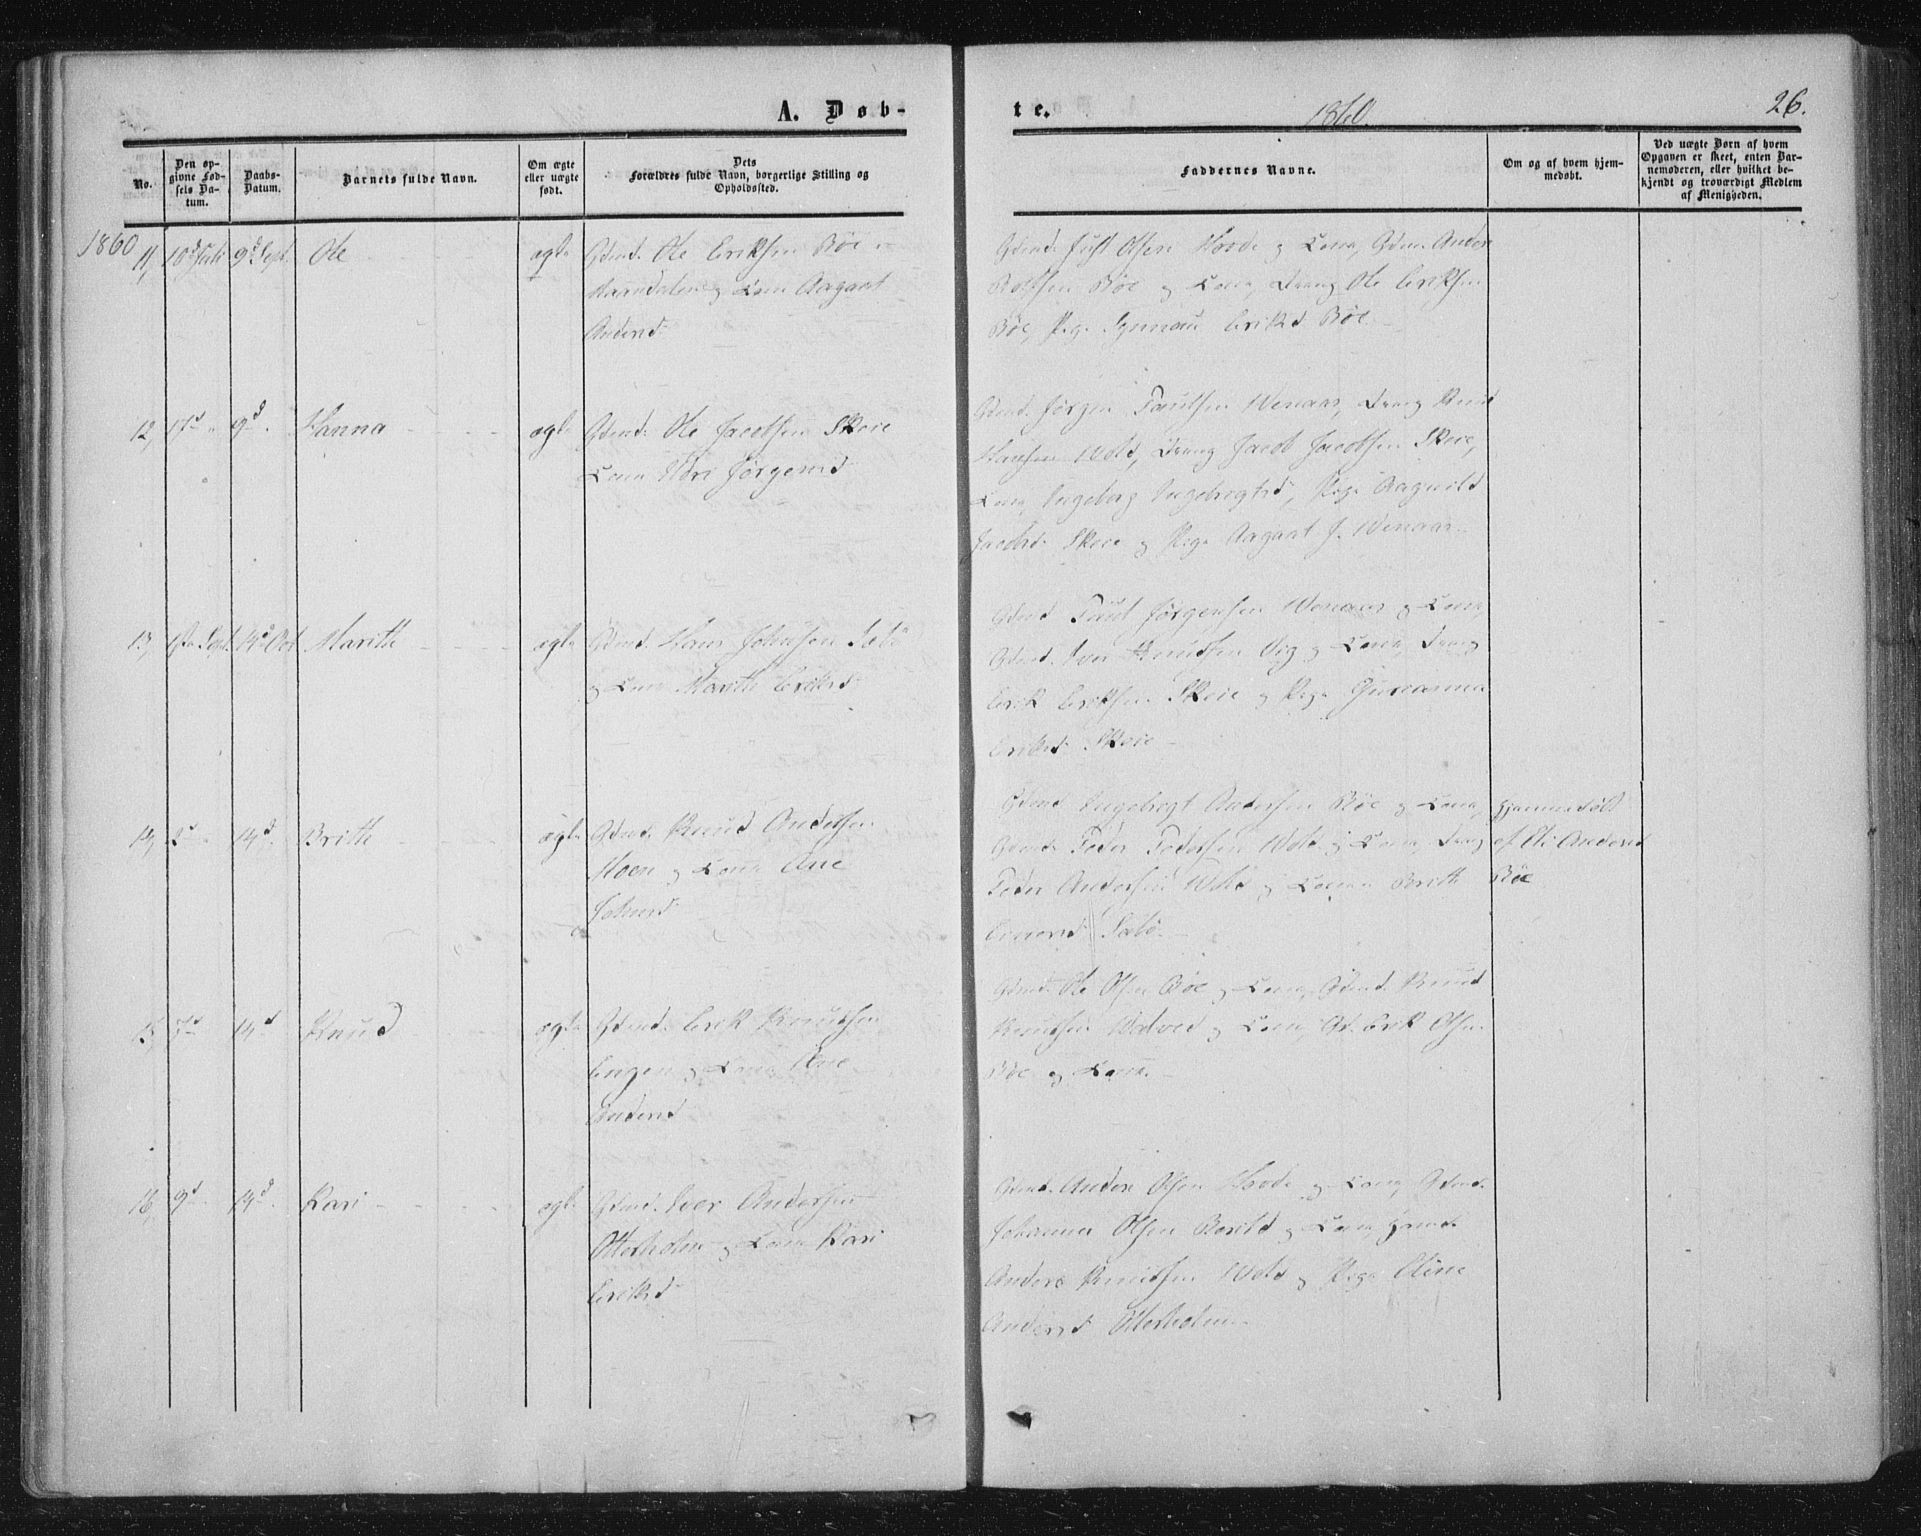 A. Døb-
te.
1860.
26.
No.
Den op-
givne Fød-
sels Da-
tum.
Daabs-
Datum.
Barnets fulde Navn.
Om ægte
eller uægte
født.
Dets
Forældres fulde Navn, borgerlige Stilling og
Opholdssted.
Faddernes Navne.
Om og af hvem hjem-
medøbt.
Ved uægte Børn af hvem
Opgaven er skeet, enten Bar-
nemoderen, eller hvilket be-
kjendt og troværdigt Medlem
af Menigheden.
1860
11, 10d Juli 9d Sept. Ole ægte Gdmd. Ole Eriksen Bøe
og Kona Aagaat
Andersd
Gdmd. Just Olsen Hovde og Kona, Gdmd. Anders
Rolfsen Bøe og Kona, Dreng Ole Eriksen
Bøe, Pige Synnau Eriksd Bøe
12, 17d 9d. Hanna ægte Gdmd. Ole Jacobsen Skeie
Kona Jørgensd
Gdmd. Jørgen Paulsen Wenaas, Dreng Knud
Hansen Wold, Dreng Jacob Jacobsen Skeie,
Kona Ingeborg Ingebrigtsd, Pige Aagnild
Jacobsd. Skeie og Pige Aagaat J. Wenaas
13, Sept. 14d Oct Marith ægte Gdmd. Hans Johnsen Sæbø
og Kona Marith Eriksd
Gdmd Paul Jørgensen Wenaas og Kona,
Gdmd. Iver Knudsen Vig og Kona, Dreng
Erik Eriksen Skeie og Pige Gurianna
Eriksd Skeie
14, 2d 14d. Brith ægte Gdmd. Knud Andersen
Moen og Kona Ane
Johnsd
Gdmd Ingebrigt Andersen Bøe og Kona,
Gdmd. Peder Pedersen Wold og Kona, Dreng
Peder Andersen Wold og Brith
Sæbø.
Hjemmedøbt
af Eli Andersd
Bøe
15, 7d 14d Knud ægte Gdmd. Erik Knudsen
Engen og Kona Ane
Andersd
Gdmd. Ole Olsen Bøe og Kona, Gdmd. Knud
Knudsen og Kona, Gd. Erik Olsen
Bøe og Kona.
16, 9d 14d. Kari ægte Gdmd. Iver Andersen
Otterholm og Kona Kari
Eriksd
Gdmd. Anders Olsen Hovde og Kona, Gdmd.
Johannes Olsen og Kona,
Anders Knudsen Wold og Pige Eline
Andersd Otterholm